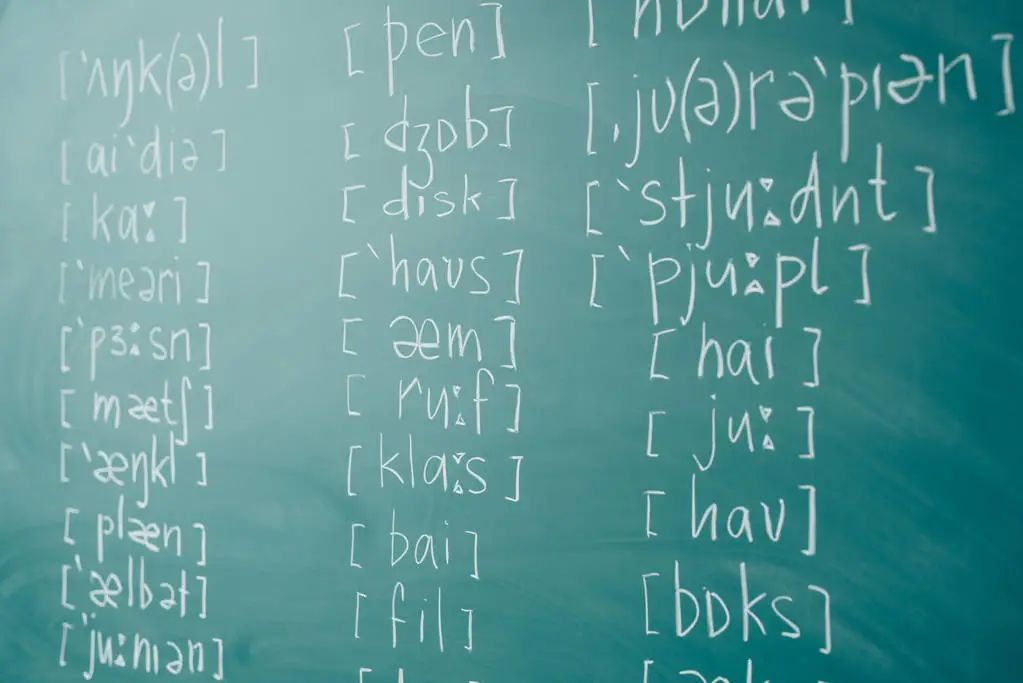 [ˋʌŋk(ə)l]
[aiˋdiə]
[kaː]
[ˋmeəri]
[ˋpɜːsn]
[mætʃ]
[ˋæŋkl]
[plæn]
[ˋælbət]
[ˋjuːnıən]
[pen]
[dʒɒb]
[disk]
[ˋhaʊs]
[æm]
[ruːf]
[klaːs]
[bai]
[fil]
[ˌjʊ(ə)rəˋpıən]
[ˋstjuːdnt]
[ˋpjuːpl]
[hai]
[juː]
[haʊ]
[bɒks]